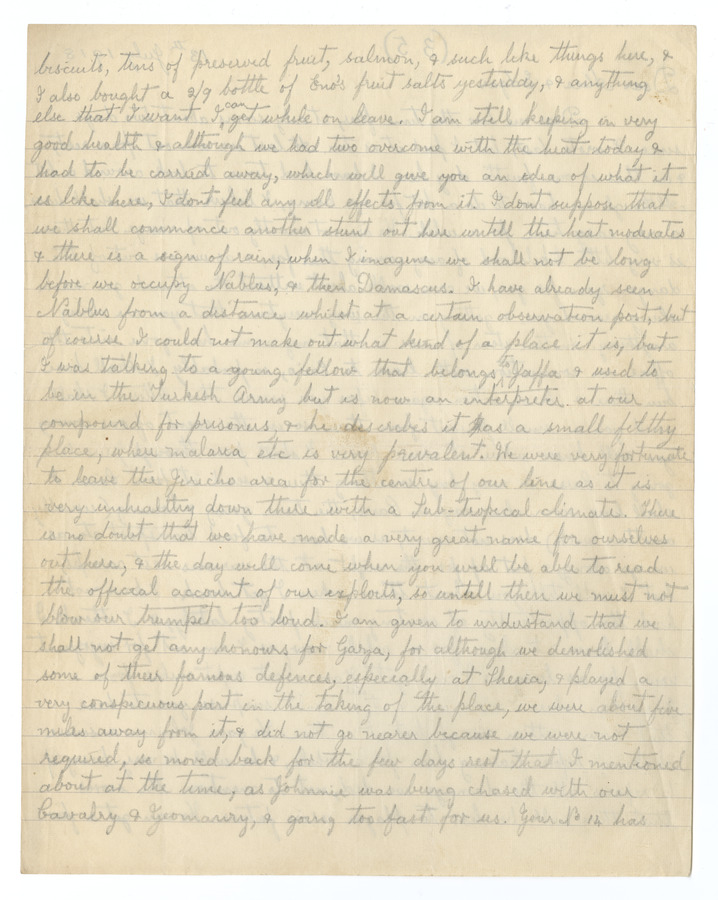 biscuits, tins of preserved fruit, salmon, & such like things here, &
I also bought a 2/9 bottle of Eno's fruit salts yesterday, & anything
else that I want I can get while on leave. I am still keeping in very
good health & although we had two overcome with the heat today &
had to be carried away, which will give you an idea of what it
is like here, I dont feel any ill effects from it. I dont suppose that
we shall commence another stunt out here untill the heat moderates
& there is a sign of rain, when I imagine we shall not be long
before we occupy Nablus, & then Damascus. I have already seen
Nablus from a distance whilst at a certain observation post, but
of course I could not make out what kind of a place it is, but
I was talking to a young fellow that belongs to Jaffa & used to
be in the Turkish Army but is now an interpreter at our
compound for prisoners, & he discribes it as a small filthy
place, where malaria etc is very prevalent. We were very fortunate
to leave the Jericho area for the centre of our line as it is
very unhealthy down there with a Sub-tropical climate. There
is no doubt that we have made a very great name for ourselves
out here, & the day will come when you will be able to read
the official account of our exploits, so untill then we must not
blow our trumpit too loud. I am given to understand that we
shall not get any honours for Gaza, for although we demolished
some of their famous defences, especially at Sheria, & played a
very conspicuous part in the taking of the place, we were about five
miles away from it, & did not go nearer because we were not
required, so moved back for the few days rest that I mentioned
about at the time, as Johnnie was being chased with our
Cavalry & Yeomanry, & going too fast for us. Your No 14 has